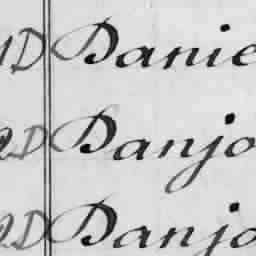 1D Danie
2D Danjo
2D Danjo